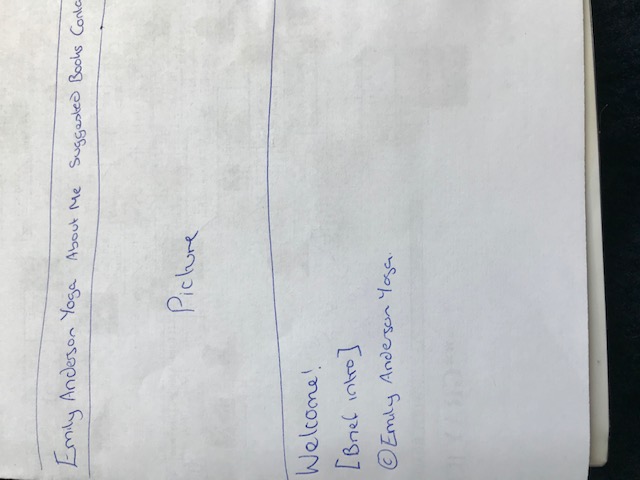 Emily Anderson Yoga About Me Suggested Books
Picture
Welcome!
[Brief intro]
©Emily Anderson Yoga.